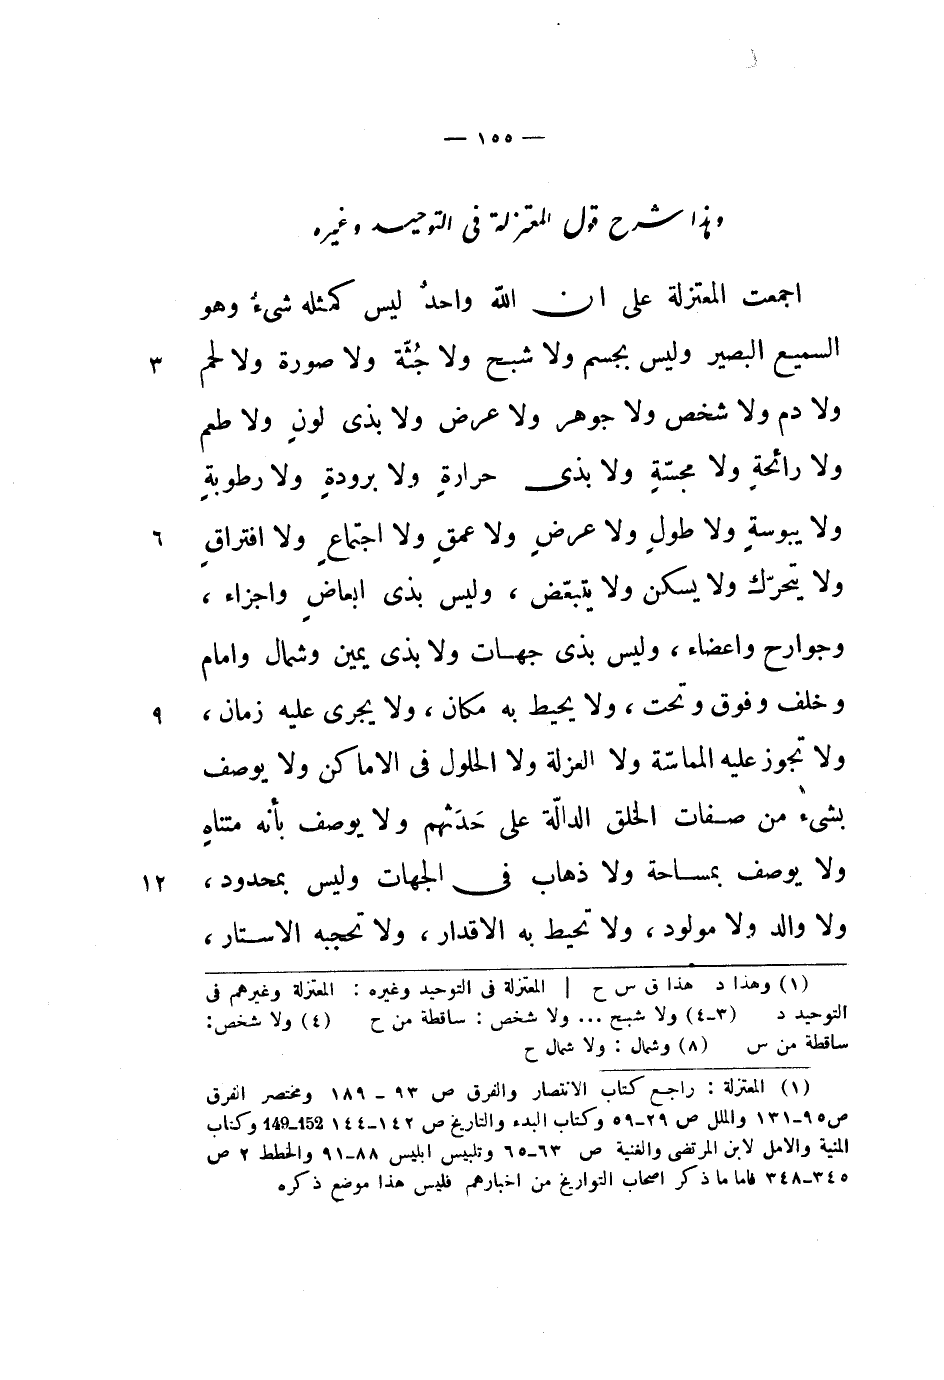 — ١٥٥ —
وهذا شرح قول المعتزلة فى التوحيد وغيره
اجمعت المعتزلة على ان الله واحدٌ ليس كمثله شىءٌ وهو
السميع البصير وليس بجسم ولا شبح ولا جُثّة ولا صورة ولا لحم ٣
ولا دم ولا شخص ولا جوهر ولا عرض ولا بذى لونٍ ولا طعمٍ
ولا رائحةٍ ولا مجسّةٍ ولا بذى حرارةٍ ولا برودةٍ ولا رطوبةٍ
ولا يبوسةٍ ولا طولٍ ولا عرضٍ ولا عمقٍ ولا اجتماعٍ ولا افتراقٍ ٦
ولا يتحرّك ولا يسكن ولا يتبعّض ، وليس بذى ابعاضٍ واجزاء ،
وجوارح واعضاء ، وليس بذى جهات ولا بذى يمين وشمال وامام
وخلف وفوق وتحت ، ولا يحيط به مكان ، ولا يجرى عليه زمان ، ٩
ولا تجوز عليه المماسّة ولا العزلة ولا الحلول فى الاماكن ولا يوصف
بشىء من صفات الخلق الدالّة على حَدَثهم ولا يوصف بأنه متناهٍ
ولا يوصف بمساحة ولا ذهاب فى الجهات وليس بمحدود ، ١٢
ولا والد ولا مولود ، ولا تحيط به الاقدار ، ولا تحجبه الاستار ،
(١) وهذا د هذا ق س ح | المعتزلة فى التوحيد وغيره : المعتزلة وغيرهم فى
التوحيد د (٣ـ٤) ولا شبح ... ولا شخص : ساقطة من ح (٤) ولا شخص :
ساقطة من س (٨) وشمال : ولا شمال ح
(١) المعتزلة : راجع كتاب الانتصار والفرق ص ٩٣ ـ ١٨٩ ومختصر الفرق
ص٩٥ـ١٣١ والملل ص ٢٩ـ٥٩ وكتاب البدء والتاريخ ص ١٤٢ـ١٤٤ 149ـ152 وكتاب
المنية والامل لابن المرتضى والغنية ص ٦٣ـ٦٥ وتلبيس ابليس ٨٨ـ٩١ والخطط ٢ ص
٣٤٥ـ٣٤٨ فاما ما ذكر اصحاب التواريخ من اخبارهم فليس هذا موضع ذكره